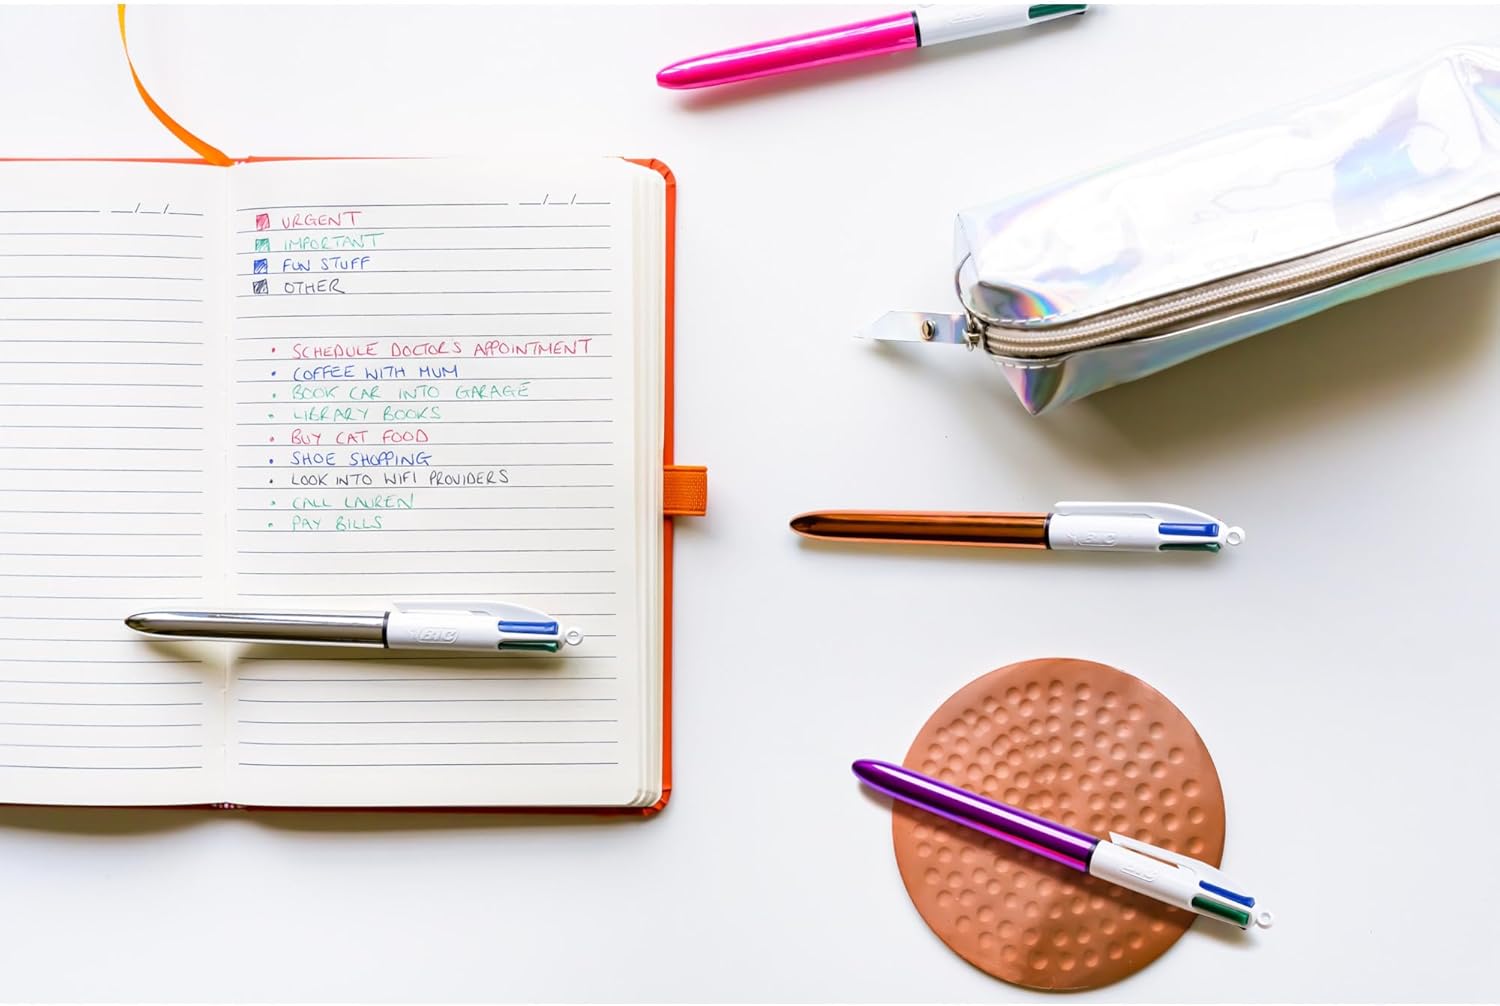 __/__/__
__/__/__
URGENT
IMPORTANT
FUN STUFF
OTHER
• SCHEDULE DOCTORS APPOINTMENT
• COFFEE WITH MUM
• BOOK CAR INTO GARAGE
• LIBRARY BOOKS
• BUY CAT FOOD
• SHOE SHOPPING
• LOOK INTO WIFI PROVIDERS
• CALL LAUREN
• PAY BILLS
BIC
BIC
BIC